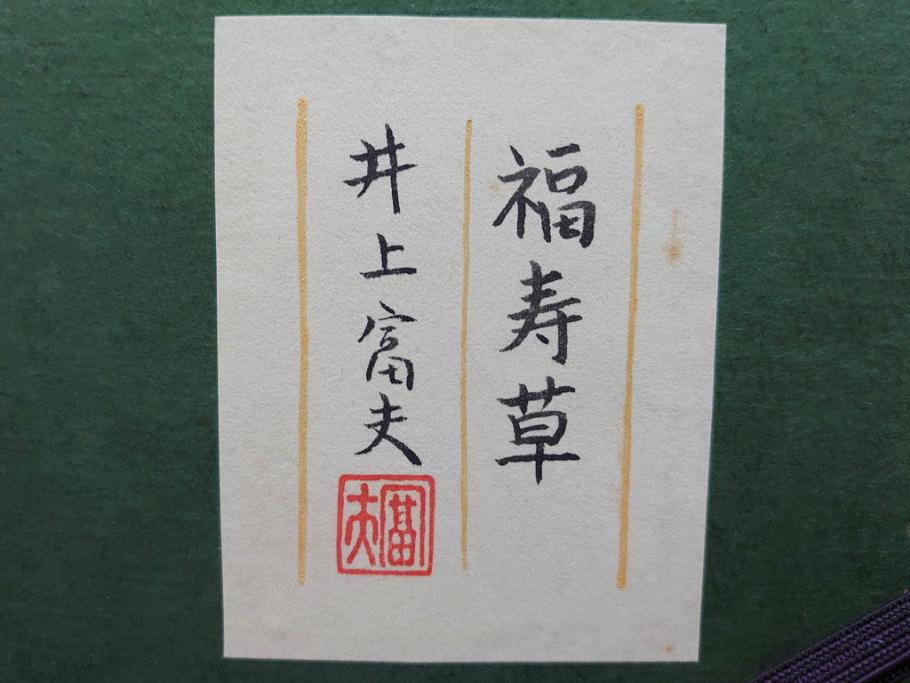 福寿草
井上富夫
富夫